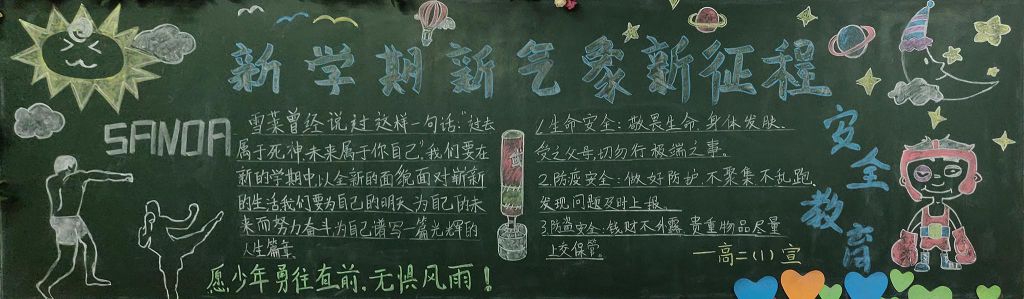 新学期新气象新征程
SANDA
雪莱曾经说过这样一句话:"过去
属于死神,未来属于你自己"我们要在
新的学期中,以全新的面貌面对崭新
的生活我们要为自己的明天、为自己的未
来而努力奋斗为自己谱写一篇光辉的
人生篇章
愿少年勇往直前,无惧风雨!
武
1.生命安全:敬畏生命,身体发肤、
受之父母,切勿行极端之事。
2.防疫安全:做好防护,不聚集不乱跑,
发现问题及时上报。
3.防盗安全:钱财不外露,贵重物品尽量
上交保管。
一高二(1)宣
安全教育